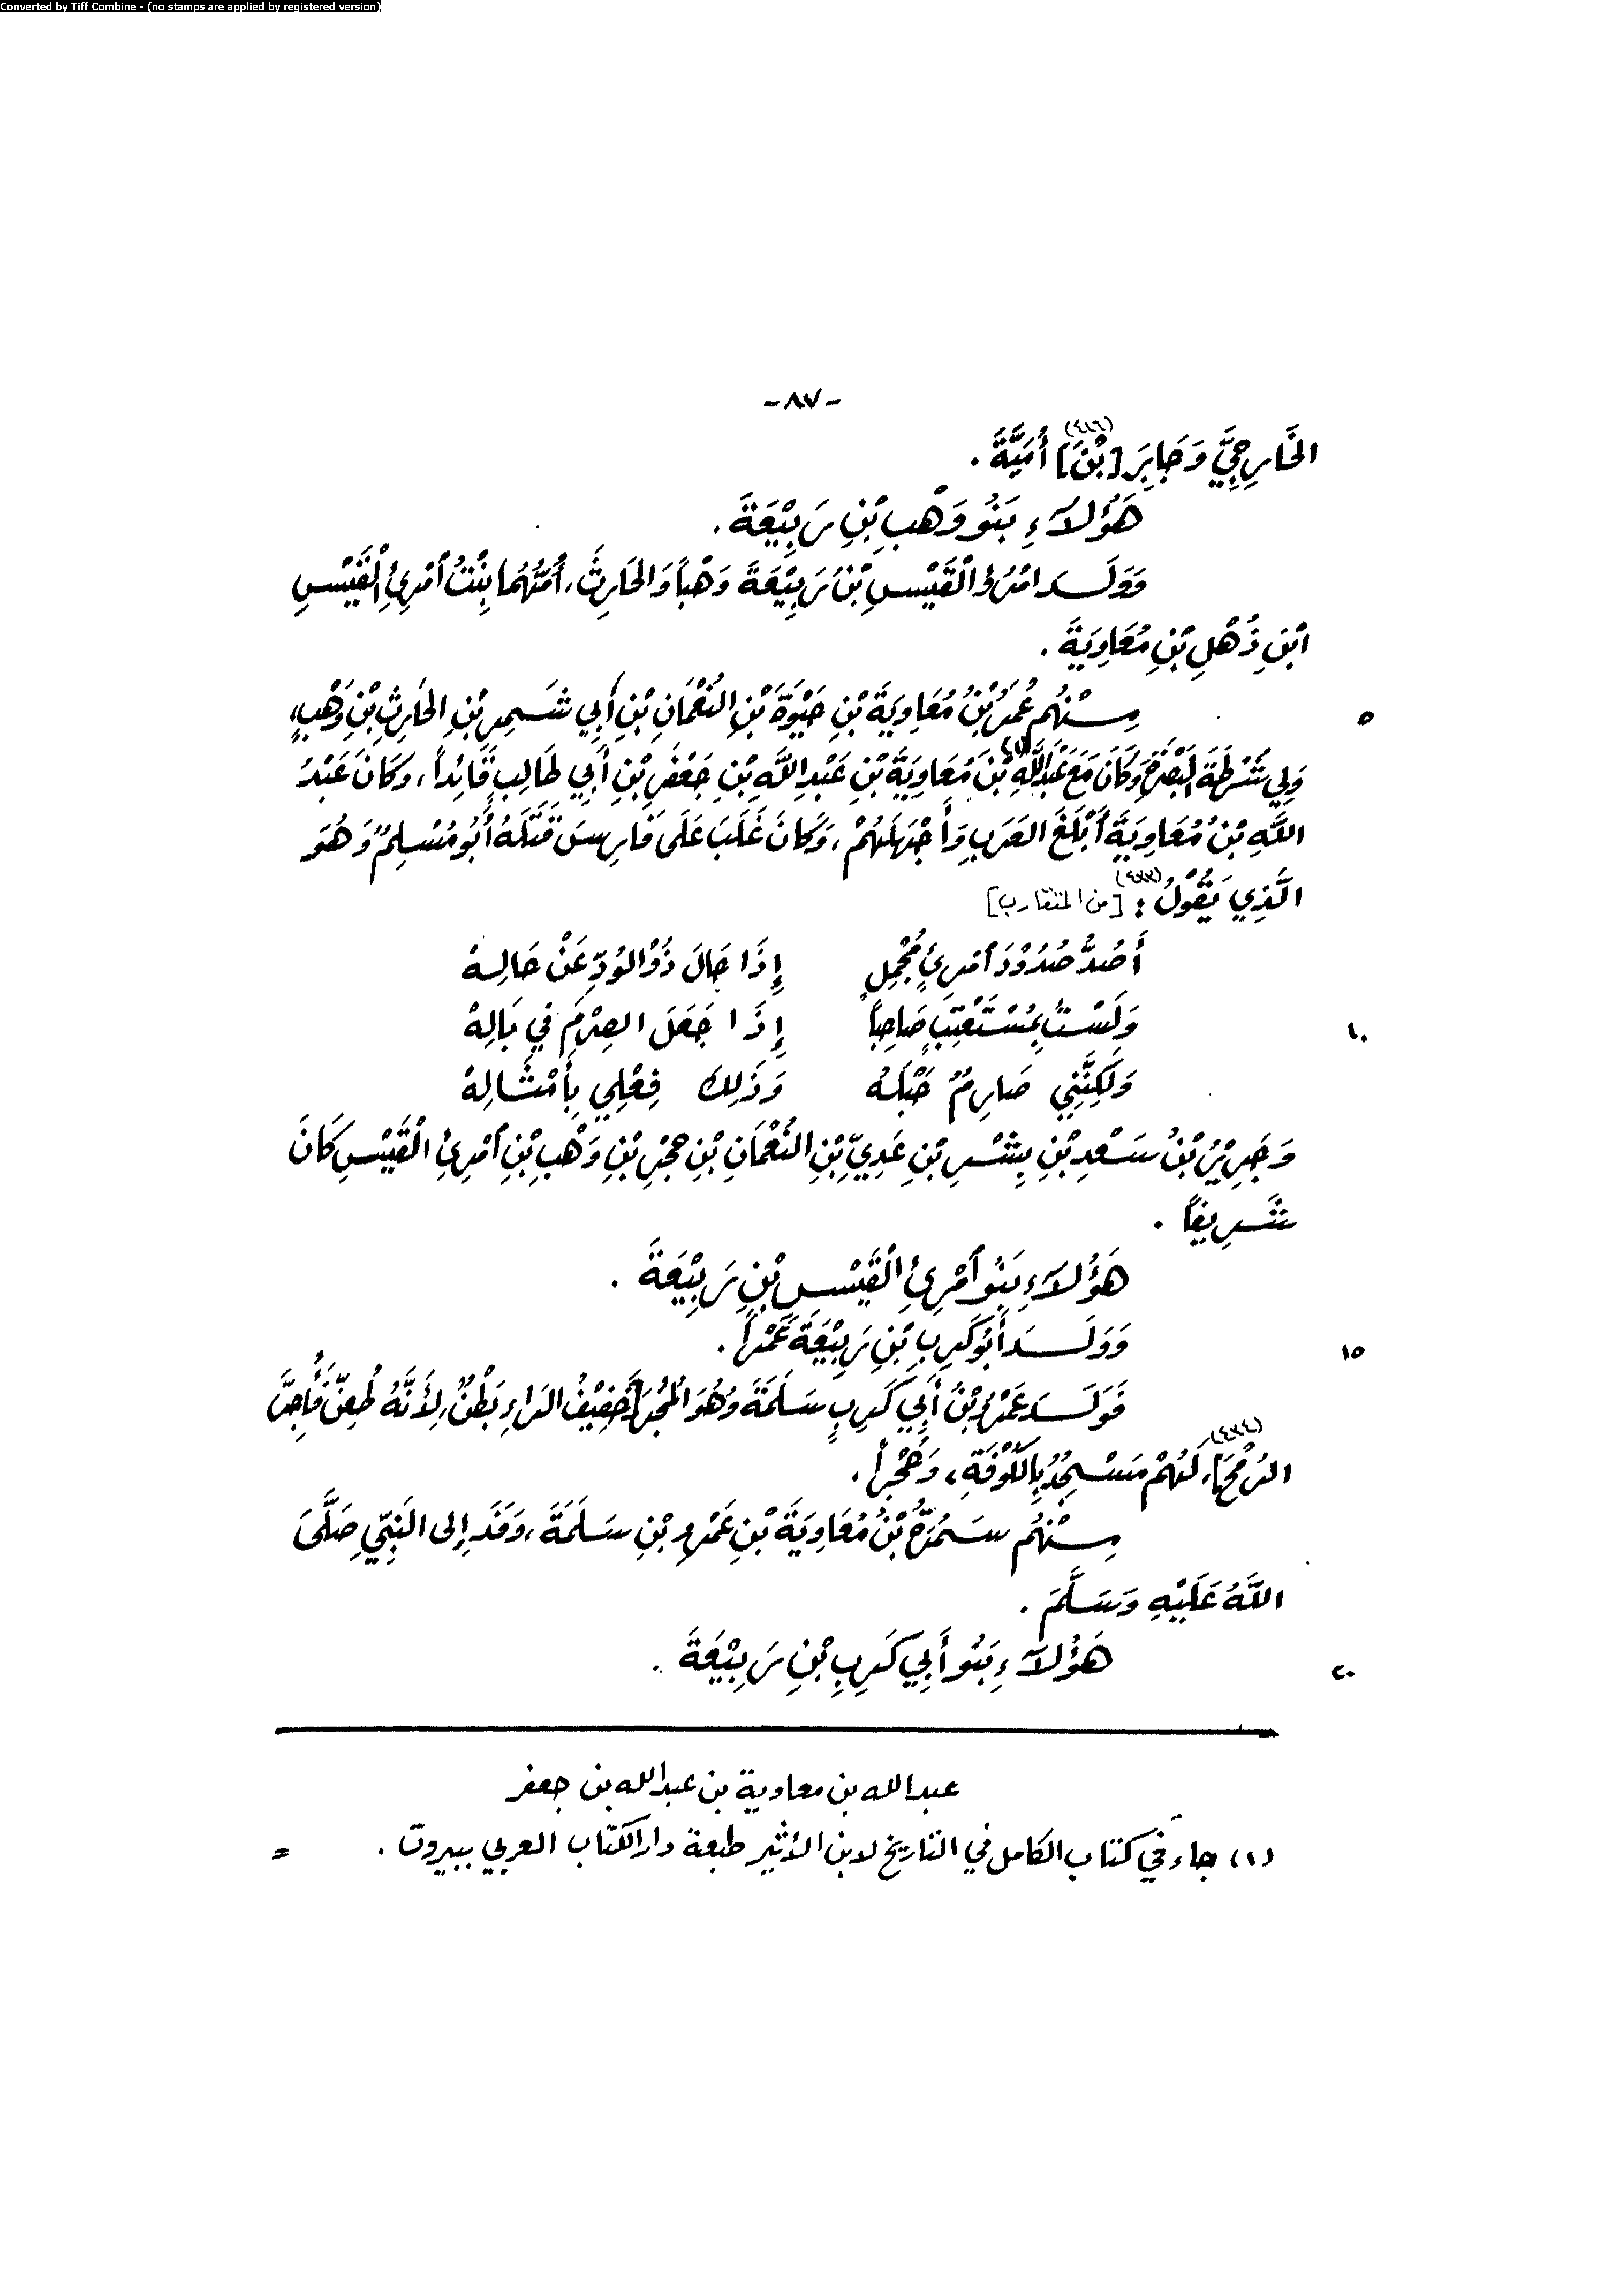 Converted by Tiff Combine - (no stamps are applied by registered version)
-٨٧-
الخَارِجِيَّ وَجَابِرَ [بْنَ] (٤١٦) أُمَيَّةَ .
هَؤُلاَءِ بَنُو وَهْبِ بْنِ رَبِيْعَةَ .
وَوَلَدَ امْرُؤُ الْقَيْسِ بْنُ رَبِيْعَةَ وَهْباً وَالحَارِثَ ، أُمُّهُمَا بِنْتُ امْرِئِ الْقَيْسِ
ابْنِ ذُهْلِ بْنِ مُعَاوِيَةَ .
٥ مِنْهُم عُمَرُ بْنُ مُعَاوِيَةَ بْنِ حَيْوَةَ بْنِ النُّعْمَانِ بْنِ أَبِي شَمِرِ بْنِ الحَارِثِ بْنِ وَهْبٍ ،
وَلِي شُرْطَةَ البَصْرَةِ وَكَانَ مَعَ عَبْدِ اللَّهِ (١) بْنَ مُعَاوِيَةَ بْنِ عَبْدِ اللَّهِ بْنِ جَعْفَرِ بْنِ أَبِي طَالِبٍ قَائِداً ، وَكَانَ عَبْدُ
اللَّهِ بْنُ مُعَاوِيَةَ أَبْلَغَ العَرَبِ وَأَجْهَلَهُمْ ، وَكَانَ غَلَبَ عَلَى فَارِسَ قَتَلَهُ أَبُو مُسْلِمٌ وَهُوَ
الَّذِي يَقُوْلُ (٤٢٣) : [من المتقارب]
أَصُدُّ صُدُوْدَ امْرِئٍ مُجْمِلٍ إِذَا حَالَ ذُوْ الوُدِّ عَنْ حَالِهْ
١٠ وَلَسْتُ بِمُسْتَعْتِبٍ صَاحِباً إِذَا جَعَلَ الصِّرْمَ فِي بَالِهْ
وَلَكِنَّنِي صَارِمٌ حَبْلَهُ وَذَلِكَ فِعْلِي بِأَمْثَالِهْ
وَجَرِيْرُ بْنُ سَعْدِ بْنِ بِشْرِ بْنِ عَدِيِّ بْنِ النُّعْمَانِ بْنِ حُجْرِ بْنِ وَهْبِ بْنِ امْرِئِ الْقَيْسِ كَانَ
شَرِيفاً .
هَؤُلاَءِ بَنُو امْرِئِ الْقَيْسِ بْنِ رَبِيْعَةَ .
١٥ وَوَلَدَ أَبُو كَرِبِ بْنِ رَبِيْعَةَ عَمْراً .
فَوَلَدَ عَمْرُو بْنُ أَبِي كَرِبٍ سَلَمَةَ وَهُوَ المُجْرَ [خَفِيْفُ الراءِ بَطْنٌ ، لِأَنَّهُ طُعِنَ فَأُجِرَّ
الرُمْحَ] (٤٢٤) ، لَهُمْ مَسْجِدٌ بِالكُوْفَةِ ، وَحُجْراً .
مِنْهُم سَمُرَةُ بْنُ مُعَاوِيَةَ بْنِ عَمْرِو بْنِ سَلَمَةَ ، وَفَدَ إِلى النَبِيِّ صَلَّى
اللَّهُ عَلَيْهِ وَسَلَّمَ .
٢٠ هَؤُلاَءِ بَنُو أَبِي كَرِبِ بْنِ رَبِيْعَةَ .
عبد الله بن معاوية بن عبد الله بن جعفر
(١) جاء في كتاب الكامل في التاريخ لابن الأثير طبعة دار الكتاب العربي ببيروت . =